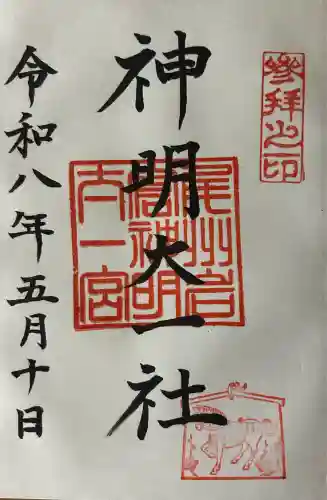 参拝之印
神明大一社
尾州岩
倉神明
大一宮
令和八年五月十日